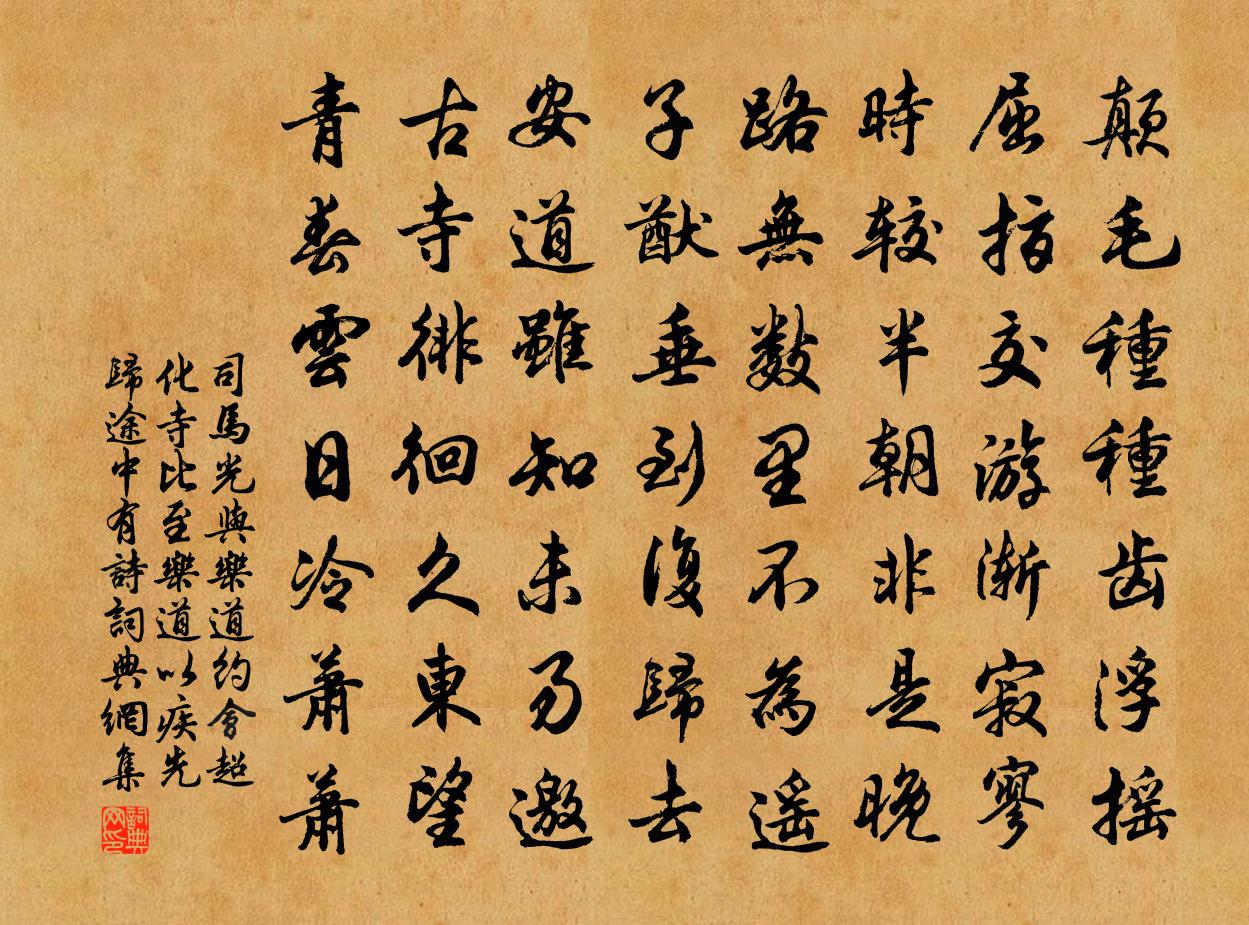 顛毛種種齒浮搖
屈指交游漸寂寥
時較半朝非是晚
路無數里不為遙
子猷垂到復歸去
安道雖知未易邀
古寺徘徊久東望
青春雲日冷蕭蕭
司馬光與樂道約會超
化寺比至樂道以疾先
歸途中有詩詞典網集
詞典
网印